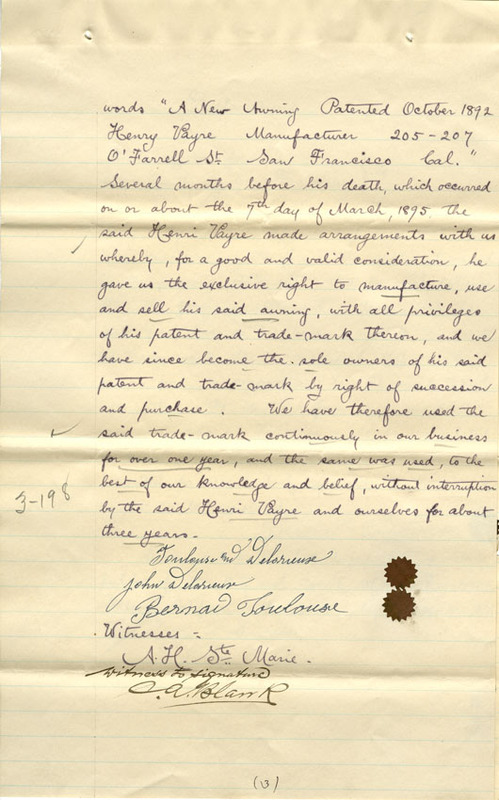 words "A New Awning Patented October 1892
Henry Vayre Manufacturer 205-207
O'Farrell St. San Francisco Cal."
Several months before his death, which occurred
on or about the 7th day of March, 1895 the
said Henri Vayre made arrangements with us
whereby, for a good and valid consideration, he
gave us the exclusive right to manufacture, use
and sell his said awning, with all privileges
of his patent and trade-mark thereon, and we
have since become the sole owners of his said
patent and trade-mark by right of succession
and purchase. We have therefore used the
said trade-mark continuously in our business
for over one year, and the same was used, to the
best of our knowledge and belief, without interruption
3-198
by the said Henri Vayre and ourselves for about
three years.
Toulouse and Delorieux
John Delorieux
Bernad Toulouse
Witnesses =
A.H. Ste. Marie.
Witness to signature
C.A. Blank
(3)